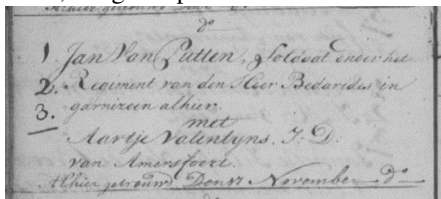 do
1. Jan Van Putten, Soldaat onder het
2. Regiment van den Heer Bedarides in
3. garnizoen alhier.
met
Aartje Valentyns. J. D.
van Amersfoort.
Alhier getrouwd Den 17 November do